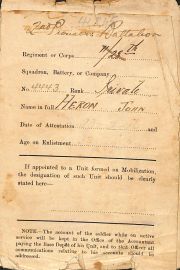 2nd Pioneer Battalion
Regiment or Corps 28th
Squadron, Battery, or Company
No. 4443 Rank Private
Name in full HERON JOHN
Date of Attestation
Age on Enlistment
If appointed to a Unit formed on Mobilization,
the designation of such Unit should be clearly
stated here—
NOTE.—The account of the soldier while on active
service will be kept in the Office of the Accountant
paying the Base Depôt of his Unit, and to that Officer all
communications relative to his accounts should be
addressed.